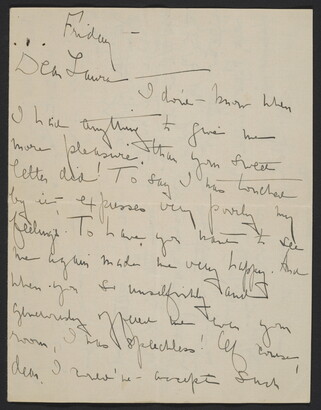 Friday –
Dear Laura
I don't know when
I had anything to give me
more pleasure than your sweet
letter did! To say I was touched
by it expresses very poorly my
feelings! To have you want to see
me again made me very happy. And
when you so unselfishly and
generously offered me even your
room, I was speechless! Of course,
dear, I couldn't accept such